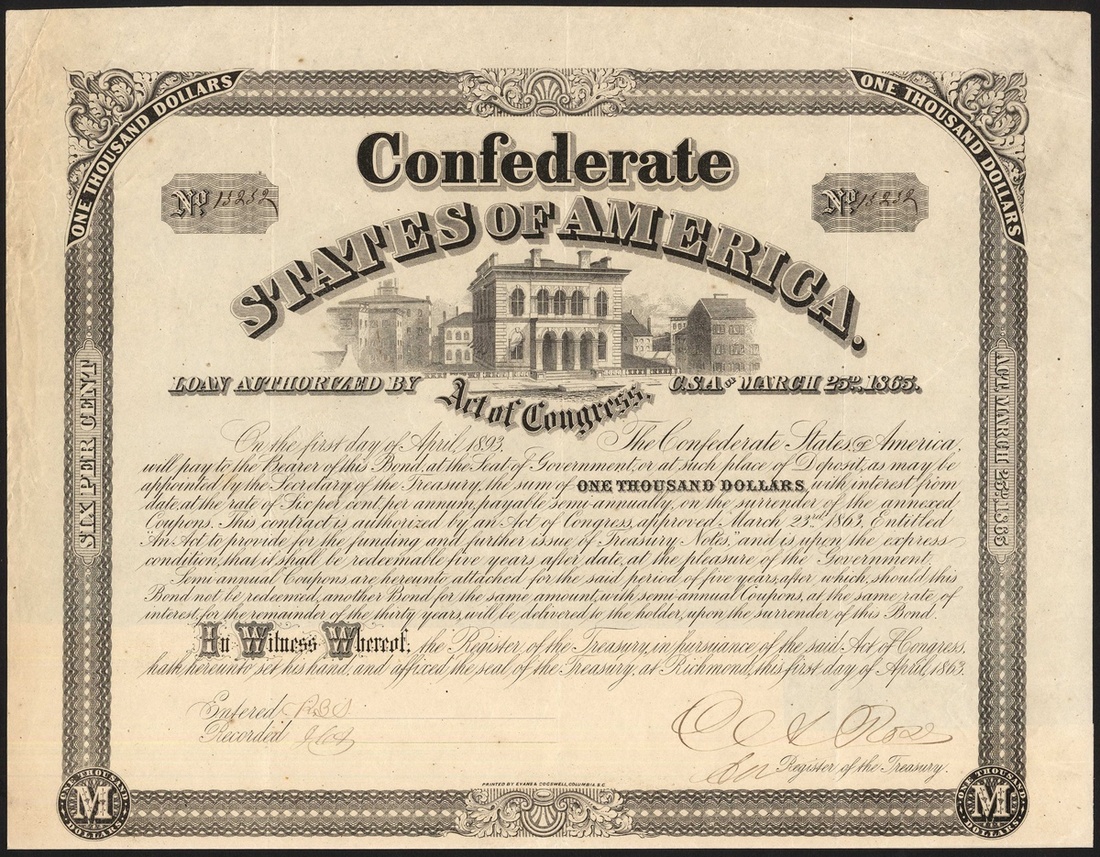 ONE THOUSAND DOLLARS
ONE THOUSAND DOLLARS
Confederate
No 15252
No 15252
STATES OF AMERICA.
LOAN AUTHORIZED BY Act of Congress, C.S.A. OF MARCH 23D. 1863.
SIX PER CENT
ACT MARCH 23D. 1863
On the first day of April, 1893, The Confederate States of America,
will pay to the Bearer of this Bond, at the Seat of Government, or at such place of Deposit, as may be
appointed by the Secretary of the Treasury, the sum of ONE THOUSAND DOLLARS, with interest from
date, at the rate of Six per cent, per annum, payable semi-annually, on the surrender of the annexed
Coupons. This contract is authorized by an Act of Congress, approved March 23rd 1863, Entitled
"An Act to provide for the funding and further issue of Treasury Notes," and is upon the express
condition, that it shall be redeemable five years after date, at the pleasure of the Government.
Semi annual Coupons are hereunto attached for the said period of five years, after which, should this
Bond not be redeemed, another Bond for the same amount, with semi-annual Coupons, at the same rate of
interest, for the remainder of the thirty years, will be delivered to the holder, upon the surrender of this Bond.
In Witness Whereof, the Register of the Treasury, in pursuance of the said Act of Congress,
hath hereunto set his hand, and affixed the seal of the Treasury, at Richmond, this first day of April, 1863.
Entered
Recorded
C A Rose
Register of the Treasury.
PRINTED BY EVANS & COGSWELL, COLUMBIA S.C.
ONE THOUSAND M DOLLARS
ONE THOUSAND M DOLLARS